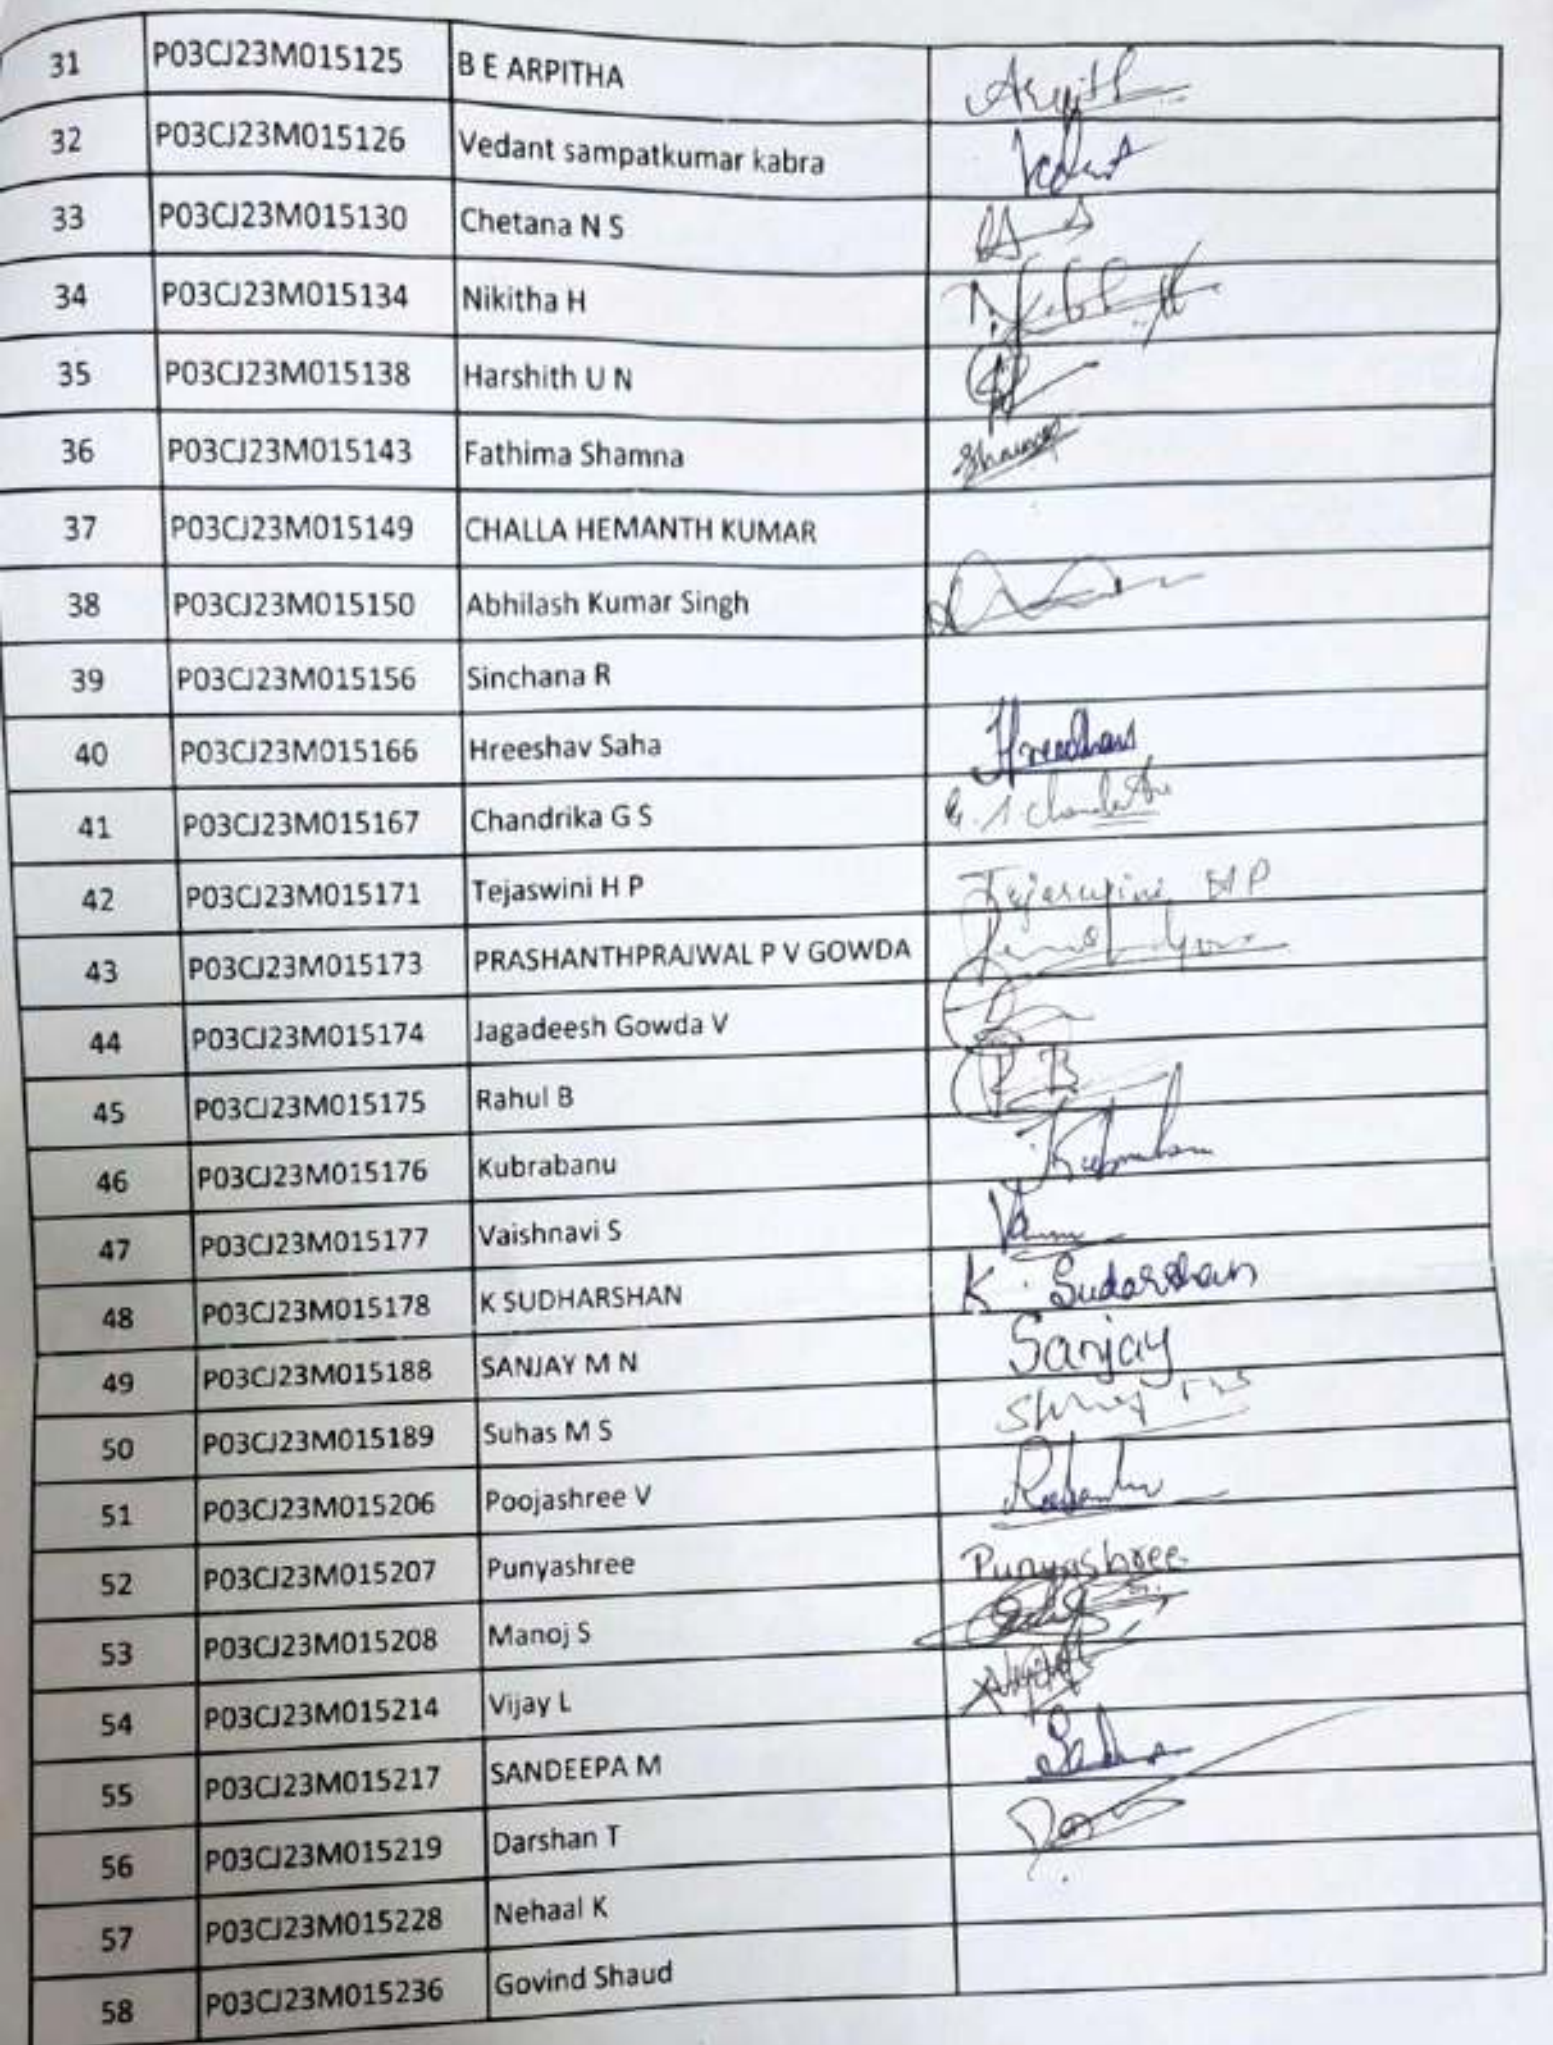 31 P03CJ23M015125 B E ARPITHA
32 P03CJ23M015126 Vedant sampatkumar kabra Vedant
33 P03CJ23M015130 Chetana N S
34 P03CJ23M015134 Nikitha H
35 P03CJ23M015138 Harshith U N
36 P03CJ23M015143 Fathima Shamna
37 P03CJ23M015149 CHALLA HEMANTH KUMAR
38 P03CJ23M015150 Abhilash Kumar Singh
39 P03CJ23M015156 Sinchana R
40 P03CJ23M015166 Hreeshav Saha
41 P03CJ23M015167 Chandrika G S
42 P03CJ23M015171 Tejaswini H P Tejaswini H P
43 P03CJ23M015173 PRASHANTHPRAJWAL P V GOWDA
44 P03CJ23M015174 Jagadeesh Gowda V
45 P03CJ23M015175 Rahul B
46 P03CJ23M015176 Kubrabanu
47 P03CJ23M015177 Vaishnavi S
48 P03CJ23M015178 K SUDHARSHAN K. Sudarshan
49 P03CJ23M015188 SANJAY M N Sanjay
50 P03CJ23M015189 Suhas M S
51 P03CJ23M015206 Poojashree V
52 P03CJ23M015207 Punyashree Punyashree
53 P03CJ23M015208 Manoj S
54 P03CJ23M015214 Vijay L
55 P03CJ23M015217 SANDEEPA M
56 P03CJ23M015219 Darshan T
57 P03CJ23M015228 Nehaal K
58 P03CJ23M015236 Govind Shaud